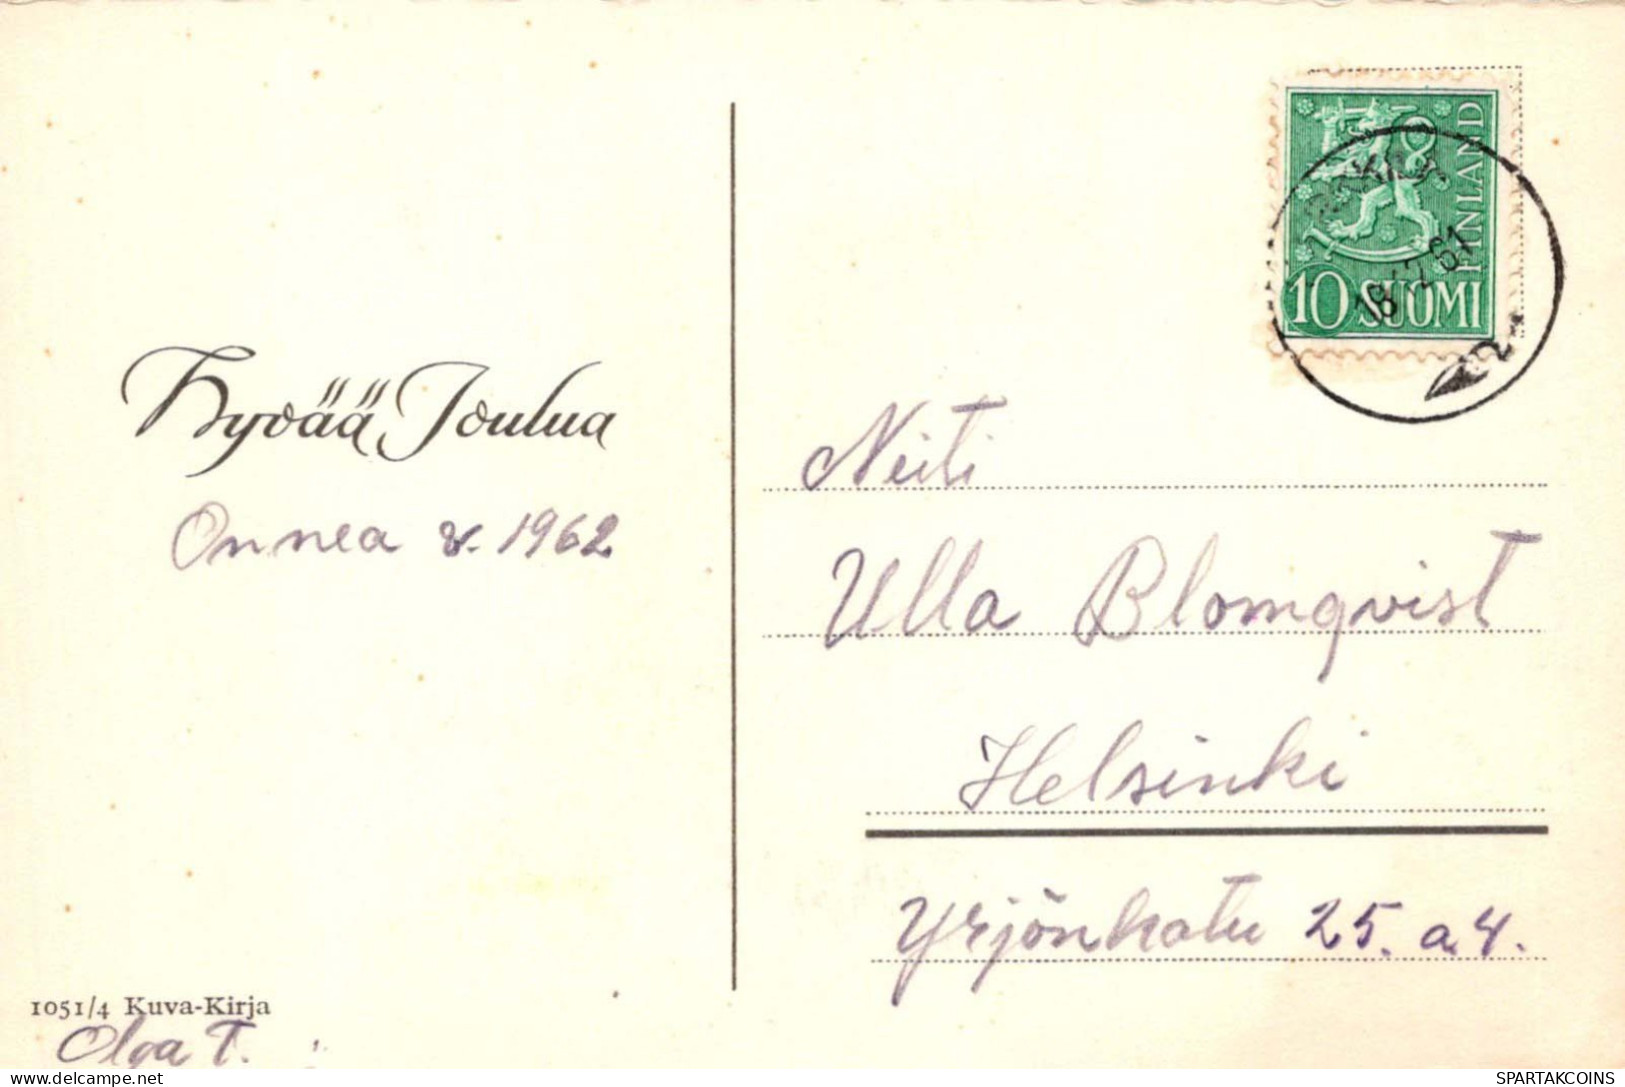 Hyvää Joulua
Onnea v. 1962
1051/4 Kuva-Kirja
Olga T.
FINLAND
10 SUOMI
18 12 61
Neiti
Ulla Blomqvist
Helsinki
Yrjönkatu 25. a 4.
delcampe.net
SPARTAKCOINS